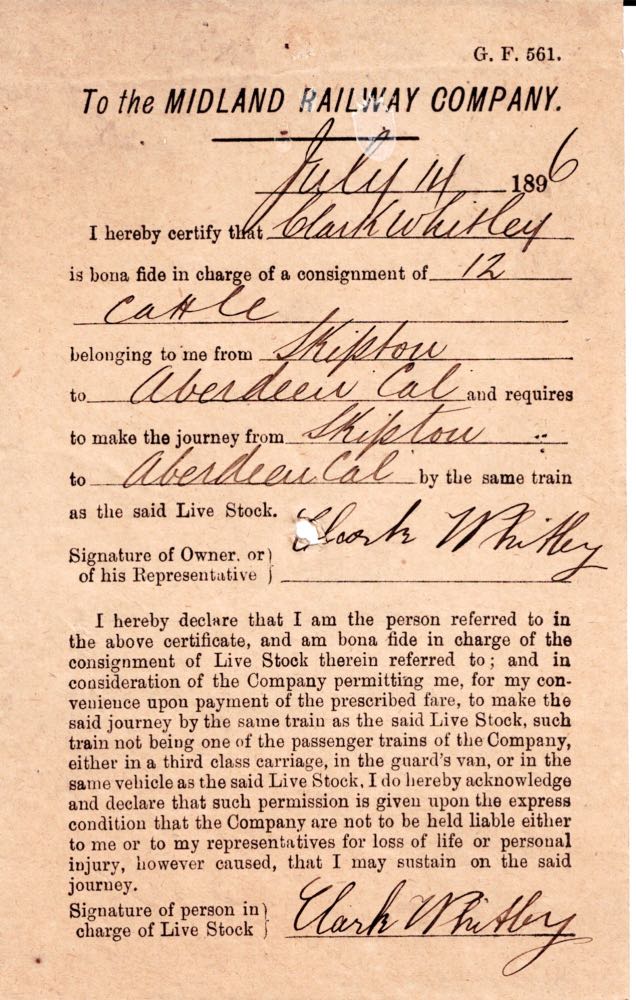 G. F. 561.
To the MIDLAND RAILWAY COMPANY.
July 14 1896
I hereby certify that Clark Whitley
is bona fide in charge of a consignment of 12
Cattle
belonging to me from Skipton
to Aberdeen Cal and requires
to make the journey from Skipton
to Aberdeen Cal by the same train
as the said Live Stock.
Clark Whitley
Signature of Owner, or
of his Representative
I hereby declare that I am the person referred to in
the above certificate, and am bona fide in charge of the
consignment of Live Stock therein referred to; and in
consideration of the Company permitting me, for my con-
venience upon payment of the prescribed fare, to make the
said journey by the same train as the said Live Stock, such
train not being one of the passenger trains of the Company,
either in a third class carriage, in the guard's van, or in the
same vehicle as the said Live Stock, I do hereby acknowledge
and declare that such permission is given upon the express
condition that the Company are not to be held liable either
to me or to my representatives for loss of life or personal
injury, however caused, that I may sustain on the said
journey.
Signature of person in
charge of Live Stock Clark Whitley